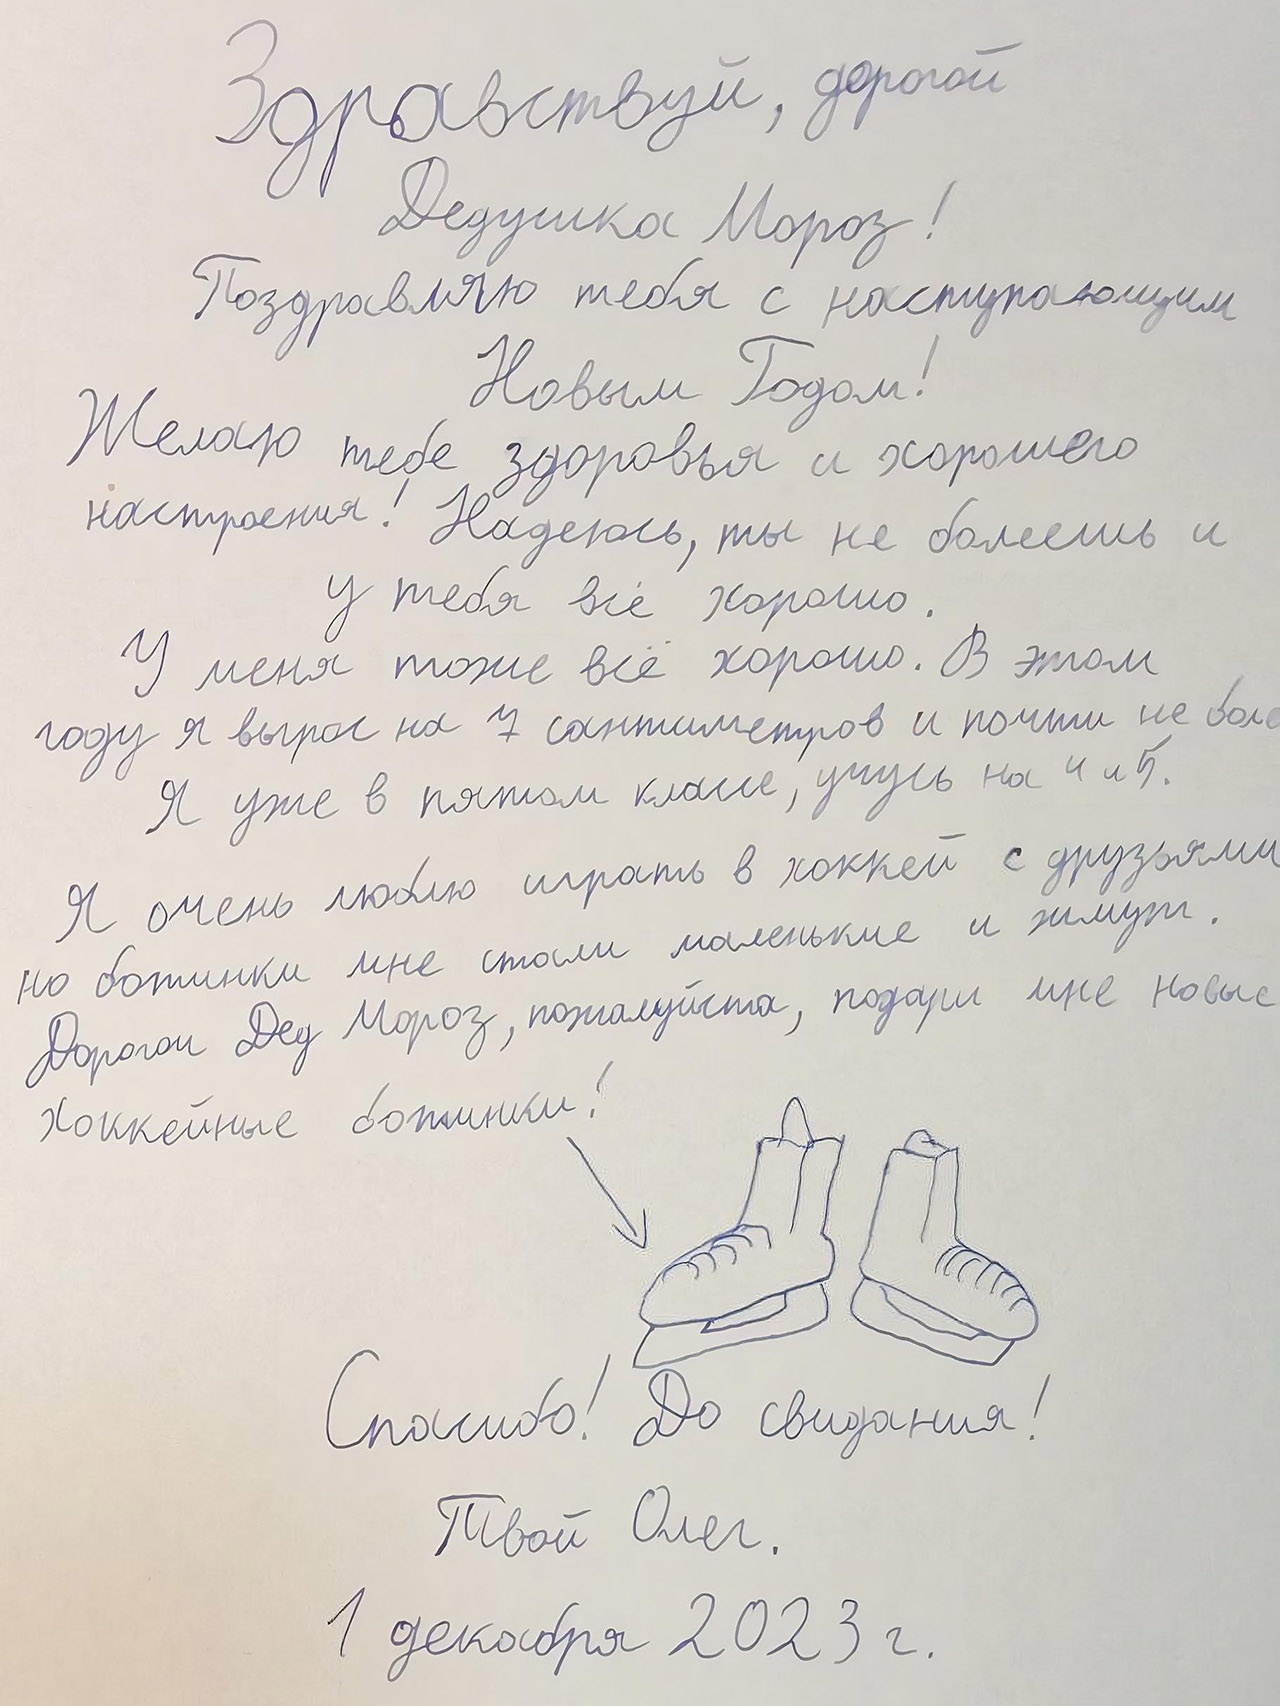 Здравствуй, дорогой
Дедушка Мороз!
Поздравляю тебя с наступающим
Новым Годом!
Желаю тебе здоровья и хорошего
настроения! Надеюсь, ты не болеешь и
у тебя всё хорошо.
У меня тоже всё хорошо. В этом
году я вырос на 7 сантиметров и почти не боле
Я уже в пятом классе, учусь на 4 и 5.
Я очень люблю играть в хоккей с друзьями
но ботинки мне стали маленькие и жмут.
Дорогой Дед Мороз, пожалуйста, подари мне новые
хоккейные ботинки!
Спасибо! До свидания!
Твой Олег.
1 декабря 2023 г.